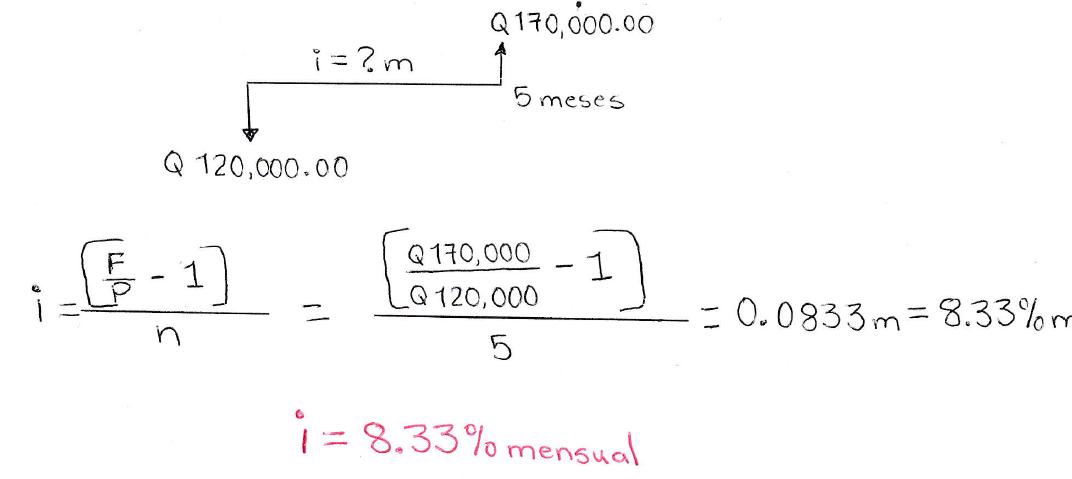 Q 170,000.00
i = ? m
5 meses
Q 120,000.00
i = [F/P - 1] / n = [Q 170,000 / Q 120,000 - 1] / 5 = 0.0833 m = 8.33% m
i = 8.33% mensual